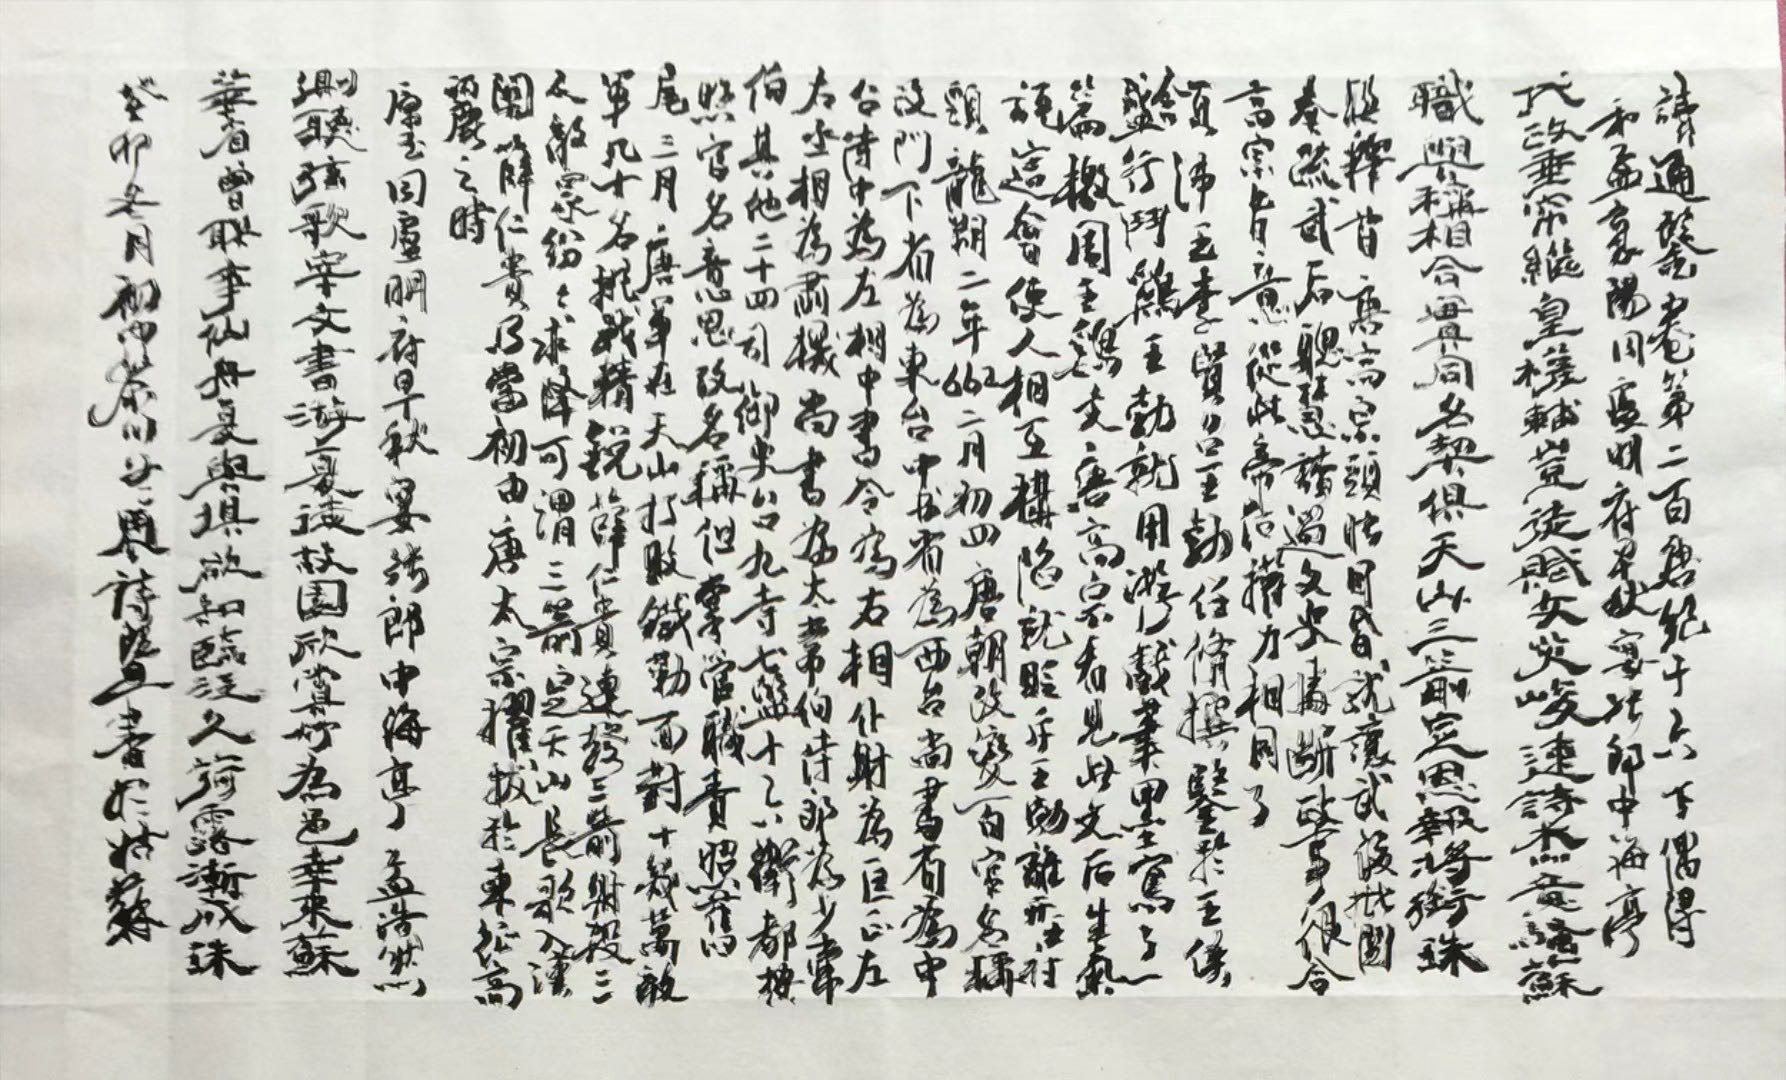 讀通鑒卷第二百唐紀十六下偶得
和孟襄陽同盧明府早秋宴張郎中海亭
代政垂帘繼皇權輔豈徒賦文英峻速詩杰意騷蘇
職興稱相合實同名契俱天山三箭定恩報將銜珠
解釋昔唐高宗頭眩目昏就讓武后批閱
奏疏武后聰慧讀過文史情斷政事很合
高宗旨意從此帝后權力相同了
頁 沛王李賢召王勃任修撰鑒於王侯
盛行鬥鷄王勃就用游戲筆墨寫了一
篇檄周王鷄文唐高宗看見此文后生氣
說這會使人相互構陷就貶斥王勃離開沛府
頭龍朔二年662二月初四唐朝改變百官名稱
改門下省為東台中書省為西台尚書省為中
台侍中為左相中書令為右相仆射為匡正左
右丞相為肅機尚書為太常伯侍郎為少常
伯其他二十四司御史台九寺七監十六衛都按
照官名意思改名稱但掌管職責照舊
尾三月唐軍在天山打敗鐵勒面對十幾萬敵
軍几十名挑戰精銳薛仁貴連發三箭射殺三
人敵眾紛々求降可謂三箭定天山長歌入漢
關薛仁貴乃當初由唐太宗擢拔於東征高
麗之時
唐玄同盧明府早秋宴張郎中海亭 孟浩然
側聽弦歌宰文書游夏徒故園欣賞竹為邑幸來蘇
華省曾聯事仙舟復與俱欲知臨泛久荷露漸成珠
癸卯冬月初四 詩 書於姑蘇